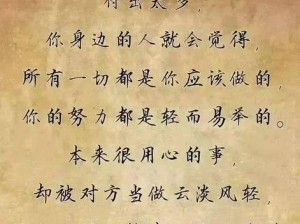 付出太多，
你身边的人就会觉得，
所有一切都是你应该做的，
你的努力都是轻而易举的。
本来很用心的事，
却被对方当做云淡风轻，